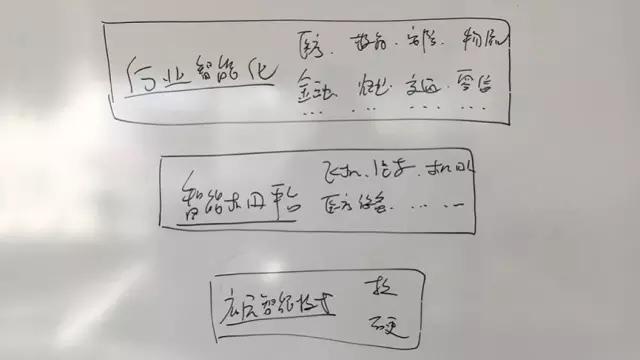 行业智能化 医疗·教育·安防·物流
金融 农业 交通 零售
…… …… …… ……
智能机器平台 飞机、汽车、机
医疗设备…… 一
底层智能技术 软
硬